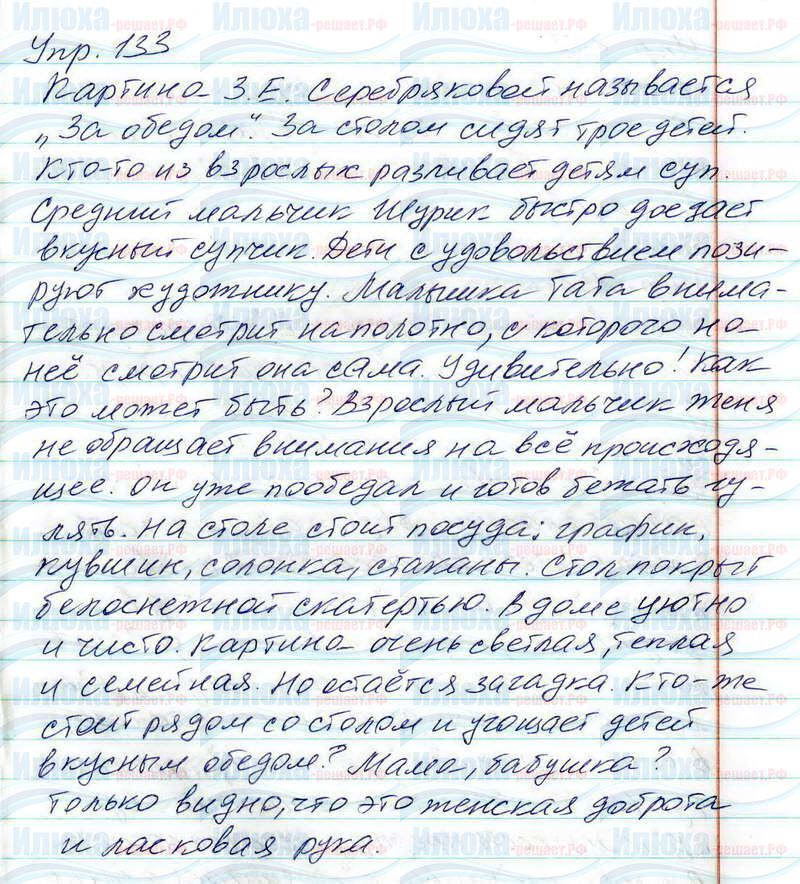 Упр. 133
Картина З.Е. Серебряковой называется
„За обедом". За столом сидят трое детей.
Кто-то из взрослых разливает детям суп.
Средний мальчик Шурик быстро доедает
вкусный супчик. Дети с удовольствием пози-
руют художнику. Малышка Тата внима-
тельно смотрит на полотно, с которого на-
неё смотрит она сама. Удивительно! Как
это может быть? Взрослый мальчик Женя
не обращает внимания на всё происходя-
щее. Он уже пообедал и готов бежать гу-
лять. На столе стоит посуда: графин,
кувшин, солонка, стаканы. Стол покрыт
белоснежной скатертью. В доме уютно
и чисто. Картина очень светлая, теплая
и семейная. Но остаётся загадка. Кто-же
стоит рядом со столом и угощает детей
вкусным обедом? Мама, бабушка?
Только видно, что это женская доброта
и ласковая рука.